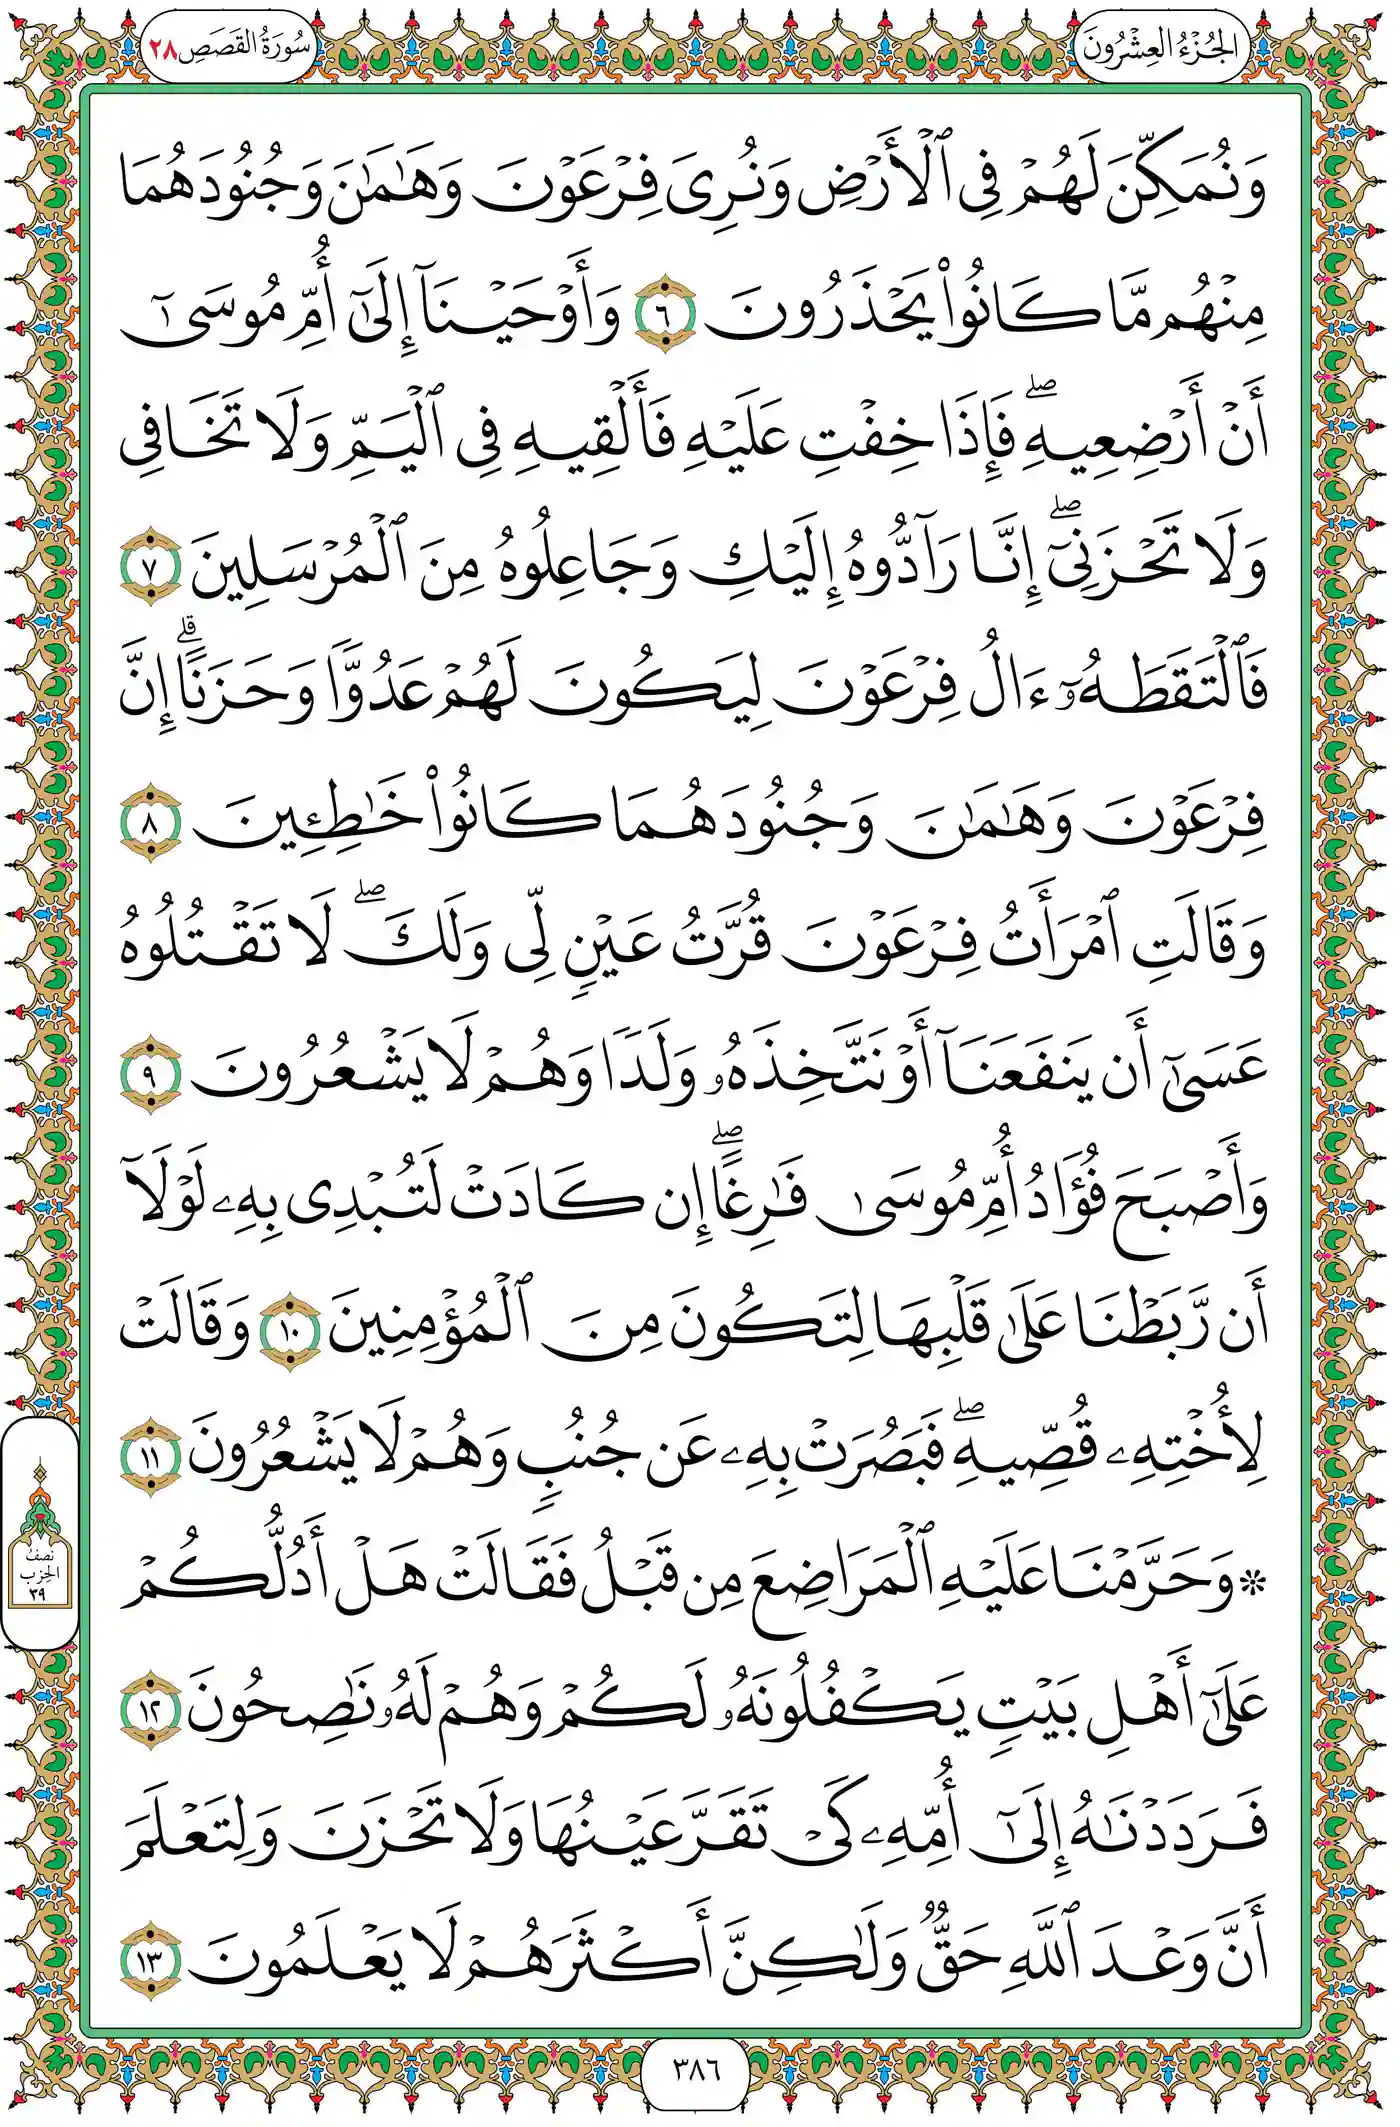 الجُزْءُ العِشْرُونَ
سُورَةُ القَصَصِ ٢٨
وَنُمَكِّنَ لَهُمْ فِى ٱلْأَرْضِ وَنُرِىَ فِرْعَوْنَ وَهَـٰمَـٰنَ وَجُنُودَهُمَا
مِنْهُم مَّا كَانُوا۟ يَحْذَرُونَ ٦ وَأَوْحَيْنَآ إِلَىٰٓ أُمِّ مُوسَىٰٓ
أَنْ أَرْضِعِيهِ ۖ فَإِذَا خِفْتِ عَلَيْهِ فَأَلْقِيهِ فِى ٱلْيَمِّ وَلَا تَخَافِى
وَلَا تَحْزَنِىٓ ۖ إِنَّا رَآدُّوهُ إِلَيْكِ وَجَاعِلُوهُ مِنَ ٱلْمُرْسَلِينَ ٧
فَٱلْتَقَطَهُۥٓ ءَالُ فِرْعَوْنَ لِيَكُونَ لَهُمْ عَدُوًّا وَحَزَنًا ۗ إِنَّ
فِرْعَوْنَ وَهَـٰمَـٰنَ وَجُنُودَهُمَا كَانُوا۟ خَـٰطِـِٔينَ ٨
وَقَالَتِ ٱمْرَأَتُ فِرْعَوْنَ قُرَّتُ عَيْنٍ لِّى وَلَكَ ۖ لَا تَقْتُلُوهُ
عَسَىٰٓ أَن يَنفَعَنَآ أَوْ نَتَّخِذَهُۥ وَلَدًا وَهُمْ لَا يَشْعُرُونَ ٩
وَأَصْبَحَ فُؤَادُ أُمِّ مُوسَىٰ فَـٰرِغًا ۖ إِن كَادَتْ لَتُبْدِى بِهِۦ لَوْلَآ
أَن رَّبَطْنَا عَلَىٰ قَلْبِهَا لِتَكُونَ مِنَ ٱلْمُؤْمِنِينَ ١٠ وَقَالَتْ
لِأُخْتِهِۦ قُصِّيهِ ۖ فَبَصُرَتْ بِهِۦ عَن جُنُبٍ وَهُمْ لَا يَشْعُرُونَ ١١
۞ وَحَرَّمْنَا عَلَيْهِ ٱلْمَرَاضِعَ مِن قَبْلُ فَقَالَتْ هَلْ أَدُلُّكُمْ
عَلَىٰٓ أَهْلِ بَيْتٍ يَكْفُلُونَهُۥ لَكُمْ وَهُمْ لَهُۥ نَـٰصِحُونَ ١٢
فَرَدَدْنَـٰهُ إِلَىٰٓ أُمِّهِۦ كَىْ تَقَرَّ عَيْنُهَا وَلَا تَحْزَنَ وَلِتَعْلَمَ
أَنَّ وَعْدَ ٱللَّهِ حَقٌّ وَلَـٰكِنَّ أَكْثَرَهُمْ لَا يَعْلَمُونَ ١٣
نصفُ
الحِزْب
٣٩
٣٨٦